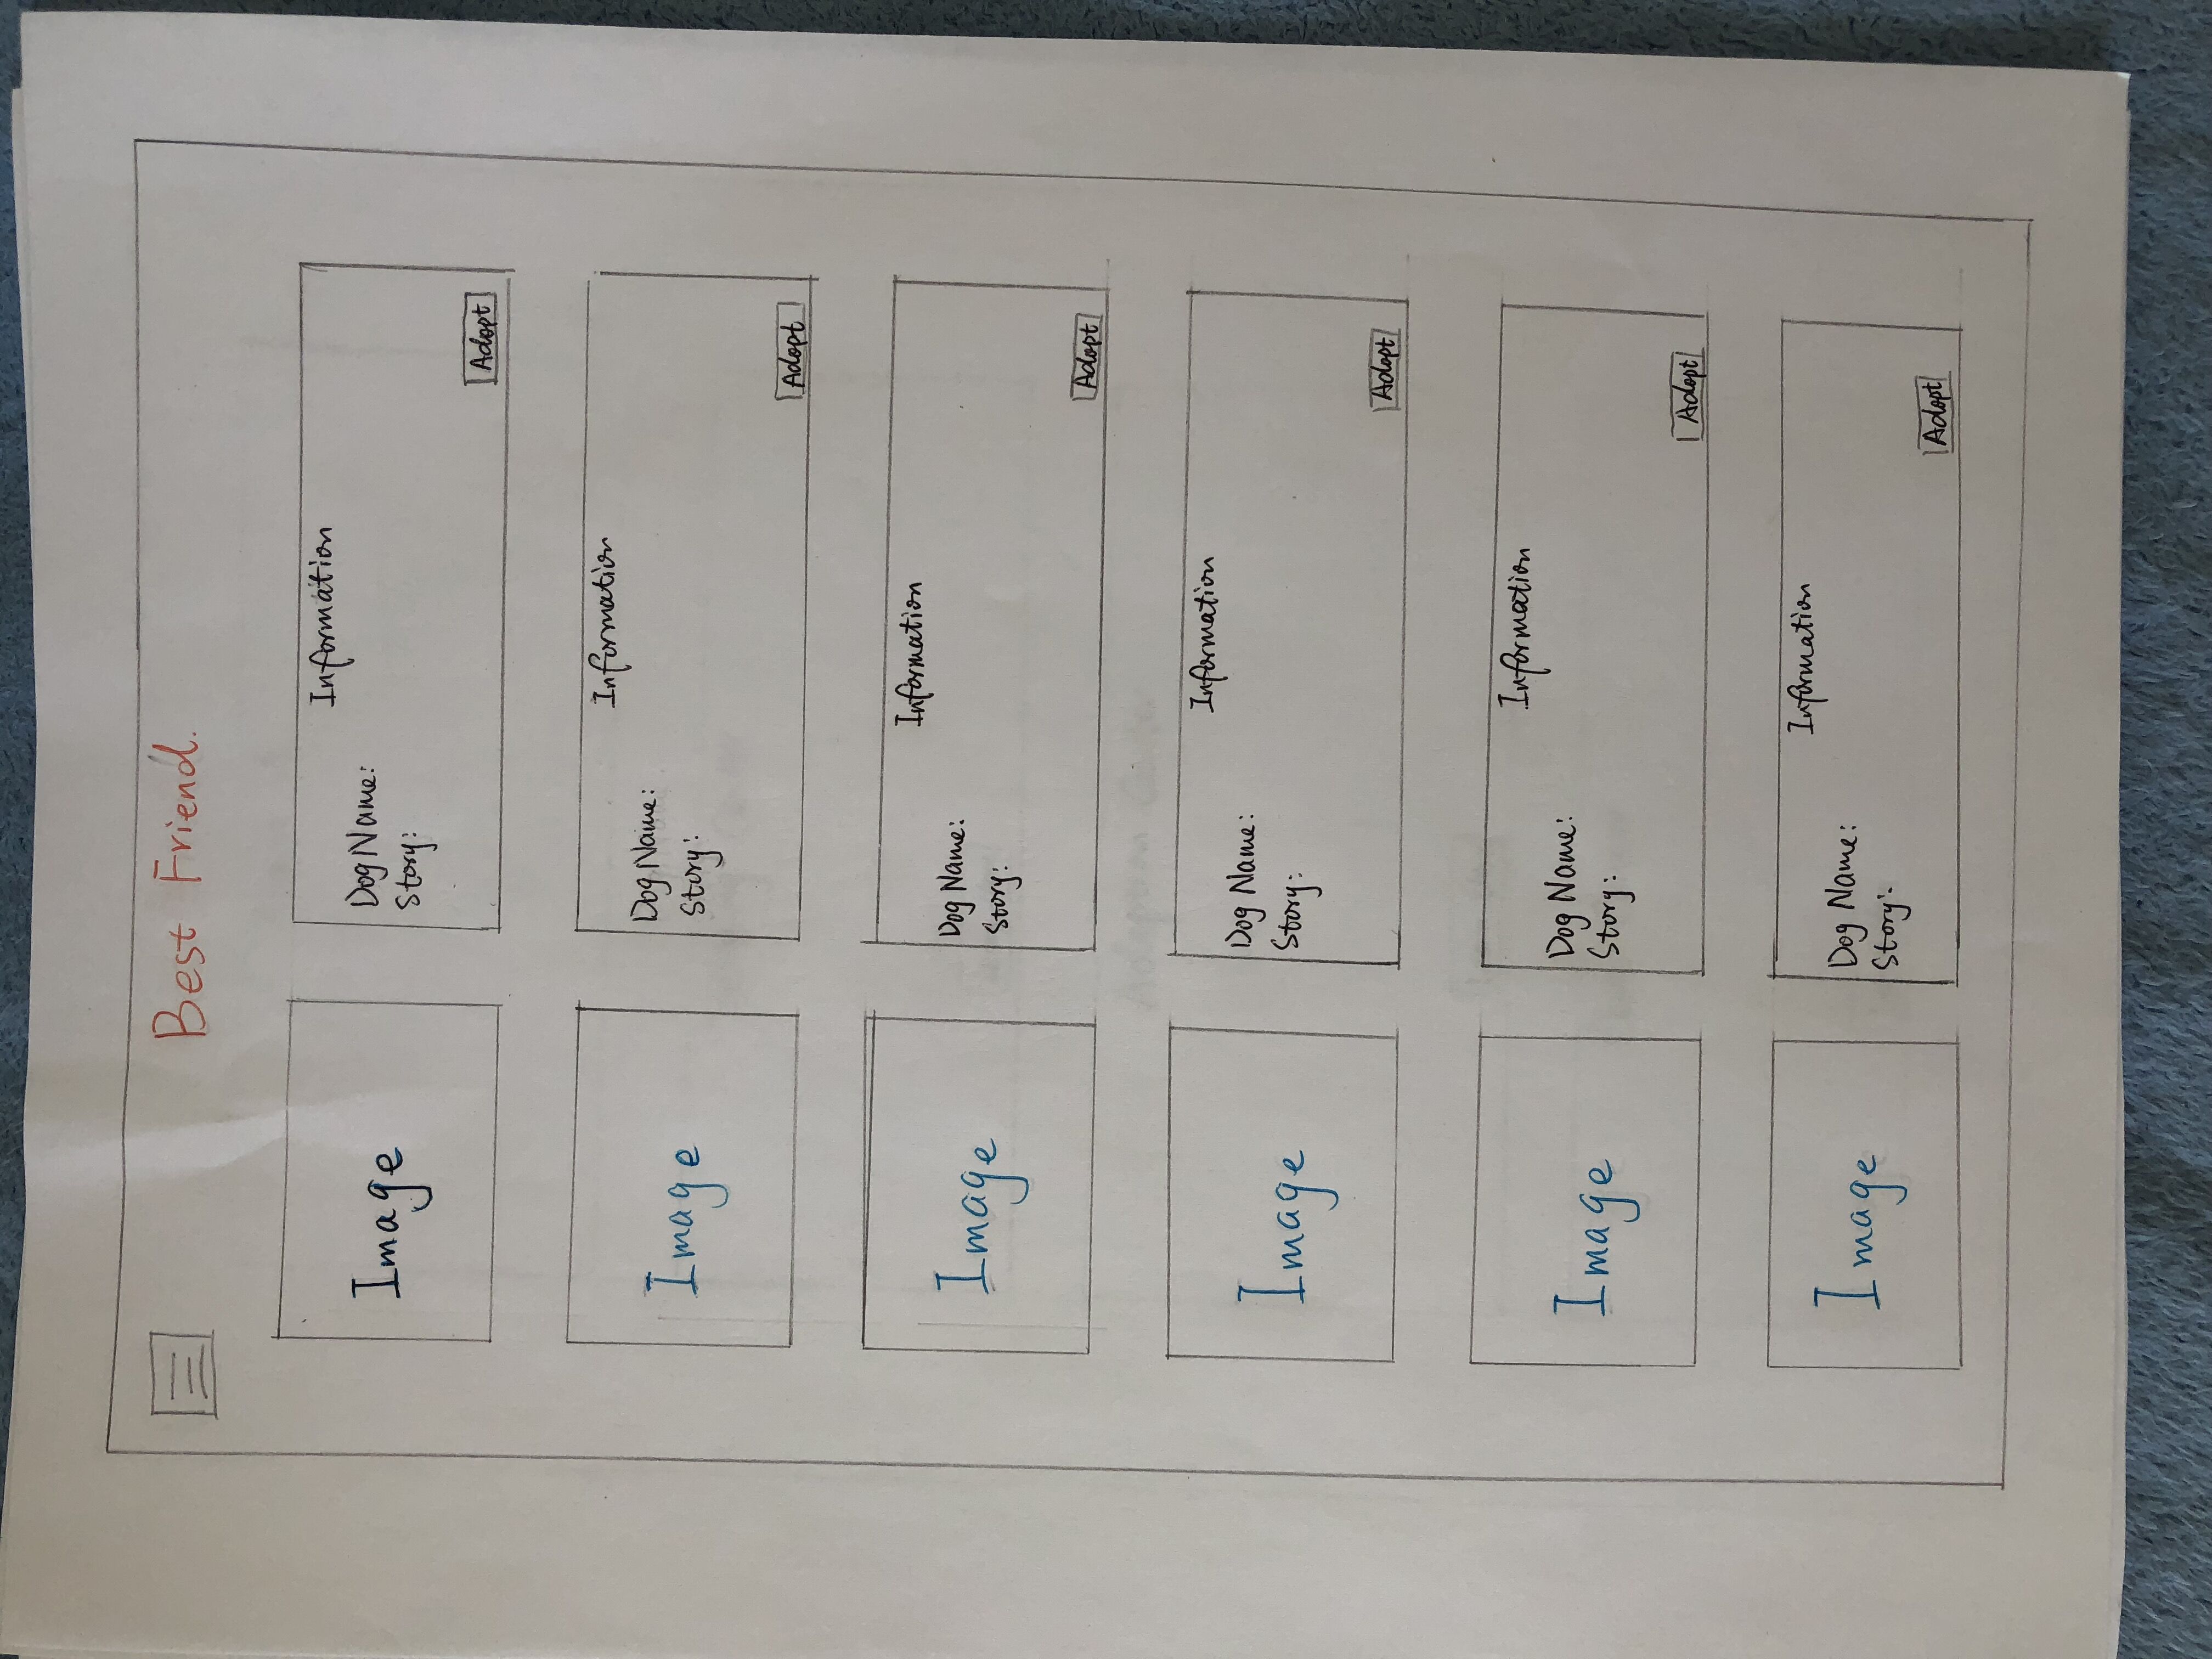 Best Friend.
Image
Information
Dog Name:
Story:
Adopt
Image
Information
Dog Name:
Story:
Adopt
Image
Information
Dog Name:
Story:
Adopt
Image
Information
Dog Name:
Story:
Adopt
Image
Information
Dog Name:
Story:
Adopt
Image
Information
Dog Name:
Story:
Adopt